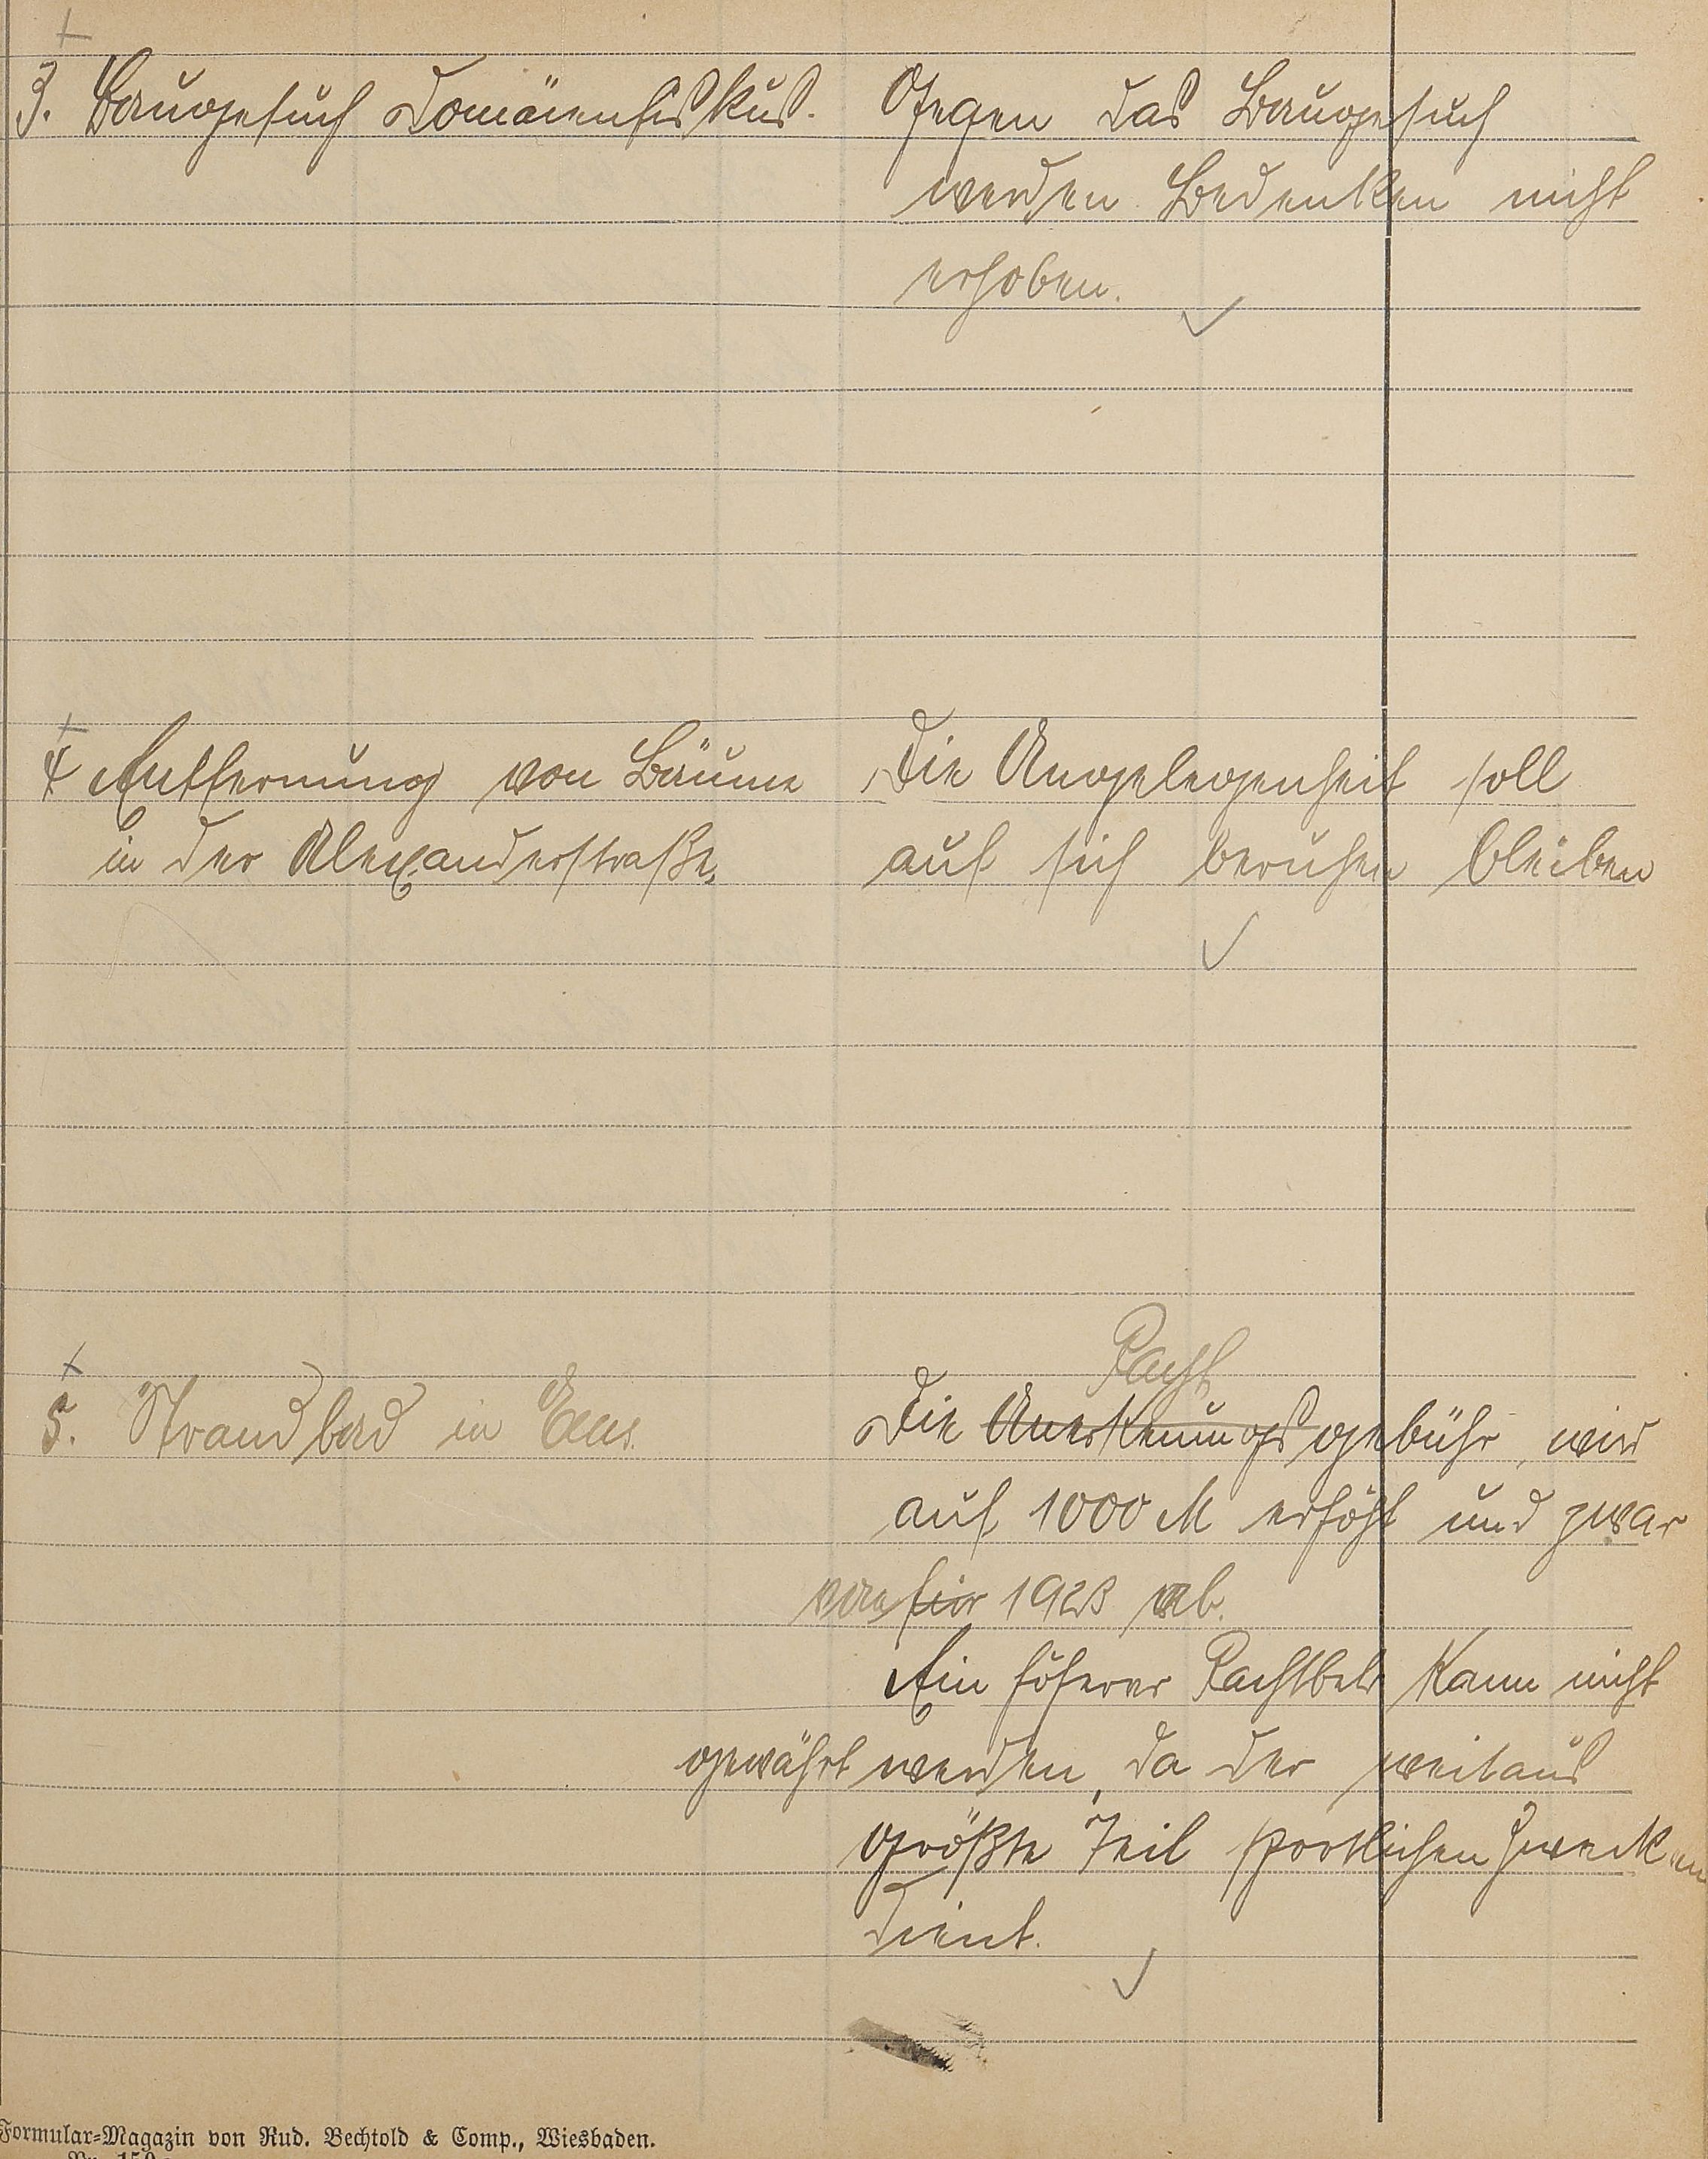 3. Baugesuch Domänenfiskus.
Gegen das Baugesuch
werden Bedenken nicht
erhoben.
4 Entfernung von Bäume
in der Alexanderstraße.
Die Angelegenheit soll
auf sich beruhen bleiben
5. Strandbad in Ems.
Pacht
Die Anerkennungsgebühr, wird
auf 1000 M erhöht und zwar
von für 1923 ab.
Ein höherer Pachtbetr kann nicht
gewährt werden, da der weitaus
größte Teil sportlichen Zwecken
dient.
Formular-Magazin von Rud. Bechtold & Comp., Wiesbaden.